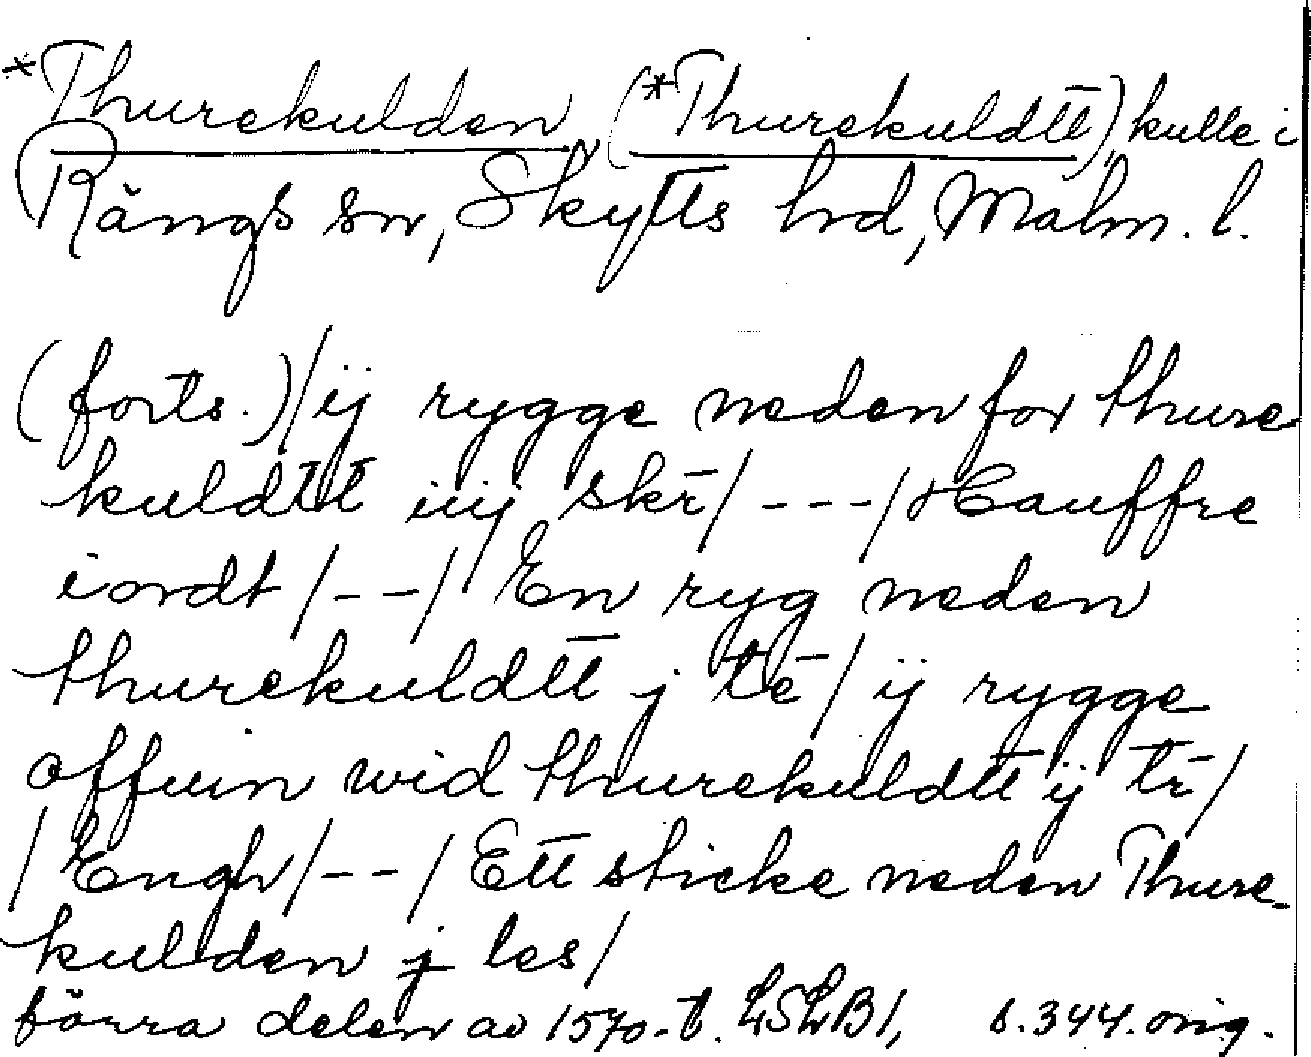 *Thurekulden, (*Thurekuldtt), kulle i
Rängs sn, Skytts hd, Malm. l.
(forts.)/ ij rygge neden for thure-
kuldtt iiij skr̄/ ---/ Hauffre
iordt/ --/ En ryg neden
thurekuldtt j tē/ ij rygge
offuin wid thurekuldtt ij tr̄/
/Engh/ --/ Ett sticke neden Thure-
kulden j les/
förra delen av 1570-t. LSLB1, s.344. orig.